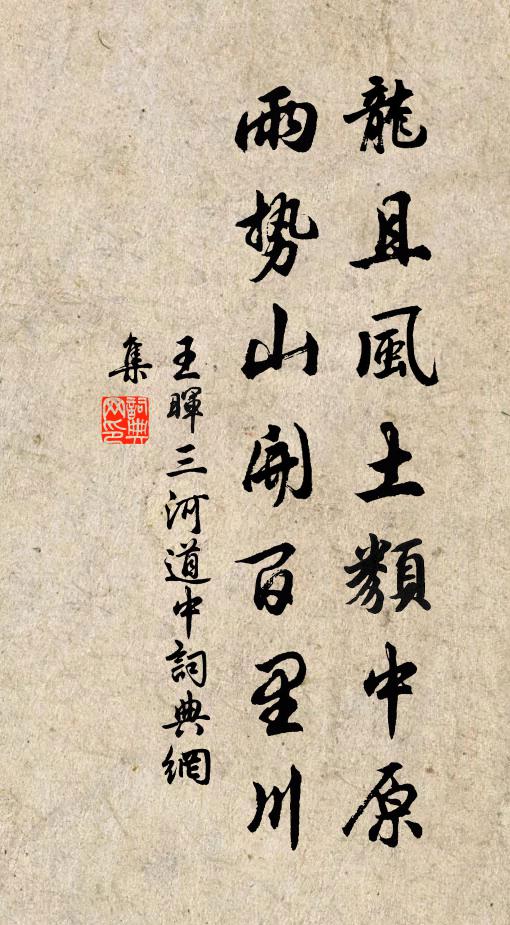 龍且風土類中原
雨勢山開百里川
王暉三河道中詞典網
集
詞典
网印